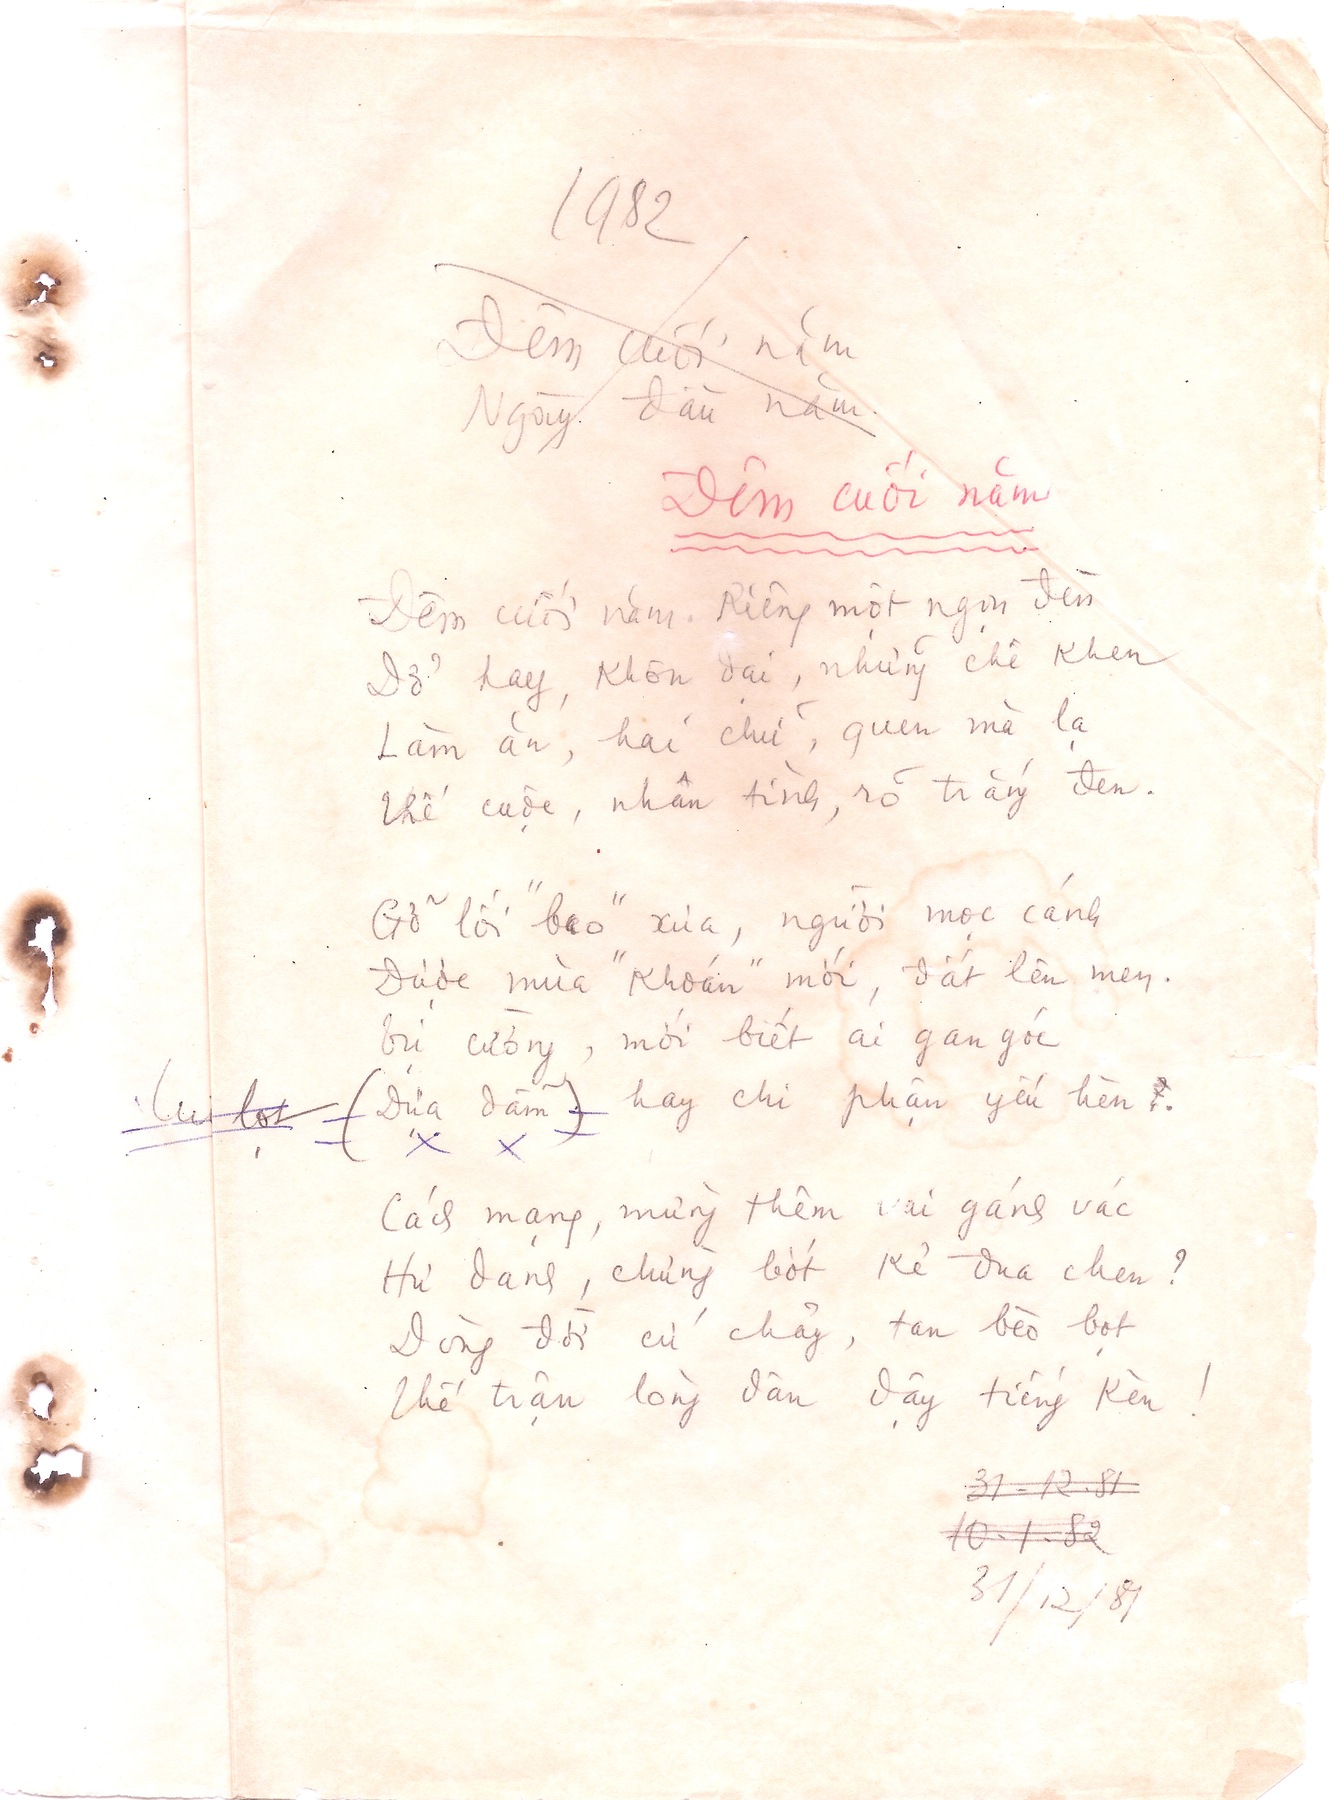 1982
Đêm cuối năm
Ngày đầu năm.
Đêm cuối năm
Đêm cuối năm. Riêng một ngọn đèn
Dở hay, khôn dại, những chê khen
Làm ăn, hai chữ, quen mà lạ
Thế cuộc, nhân tình, rõ trắng đen.
Gỡ lối "bao" xưa, người mọc cánh
Được mùa "khoán" mới, đất lên men.
Bự cường, mới biết ai gan góc
lọt (Dựa dẫm) hay chi phận yếu hèn?
Cách mạng, mừng thêm vai gánh vác
Hư danh, chừng bớt kẻ đua chen?
Dòng đời cứ chảy, tan bèo bọt
Thế trận lòng dân dậy tiếng kèn!
31-12-81
10-1-82
31/12/81